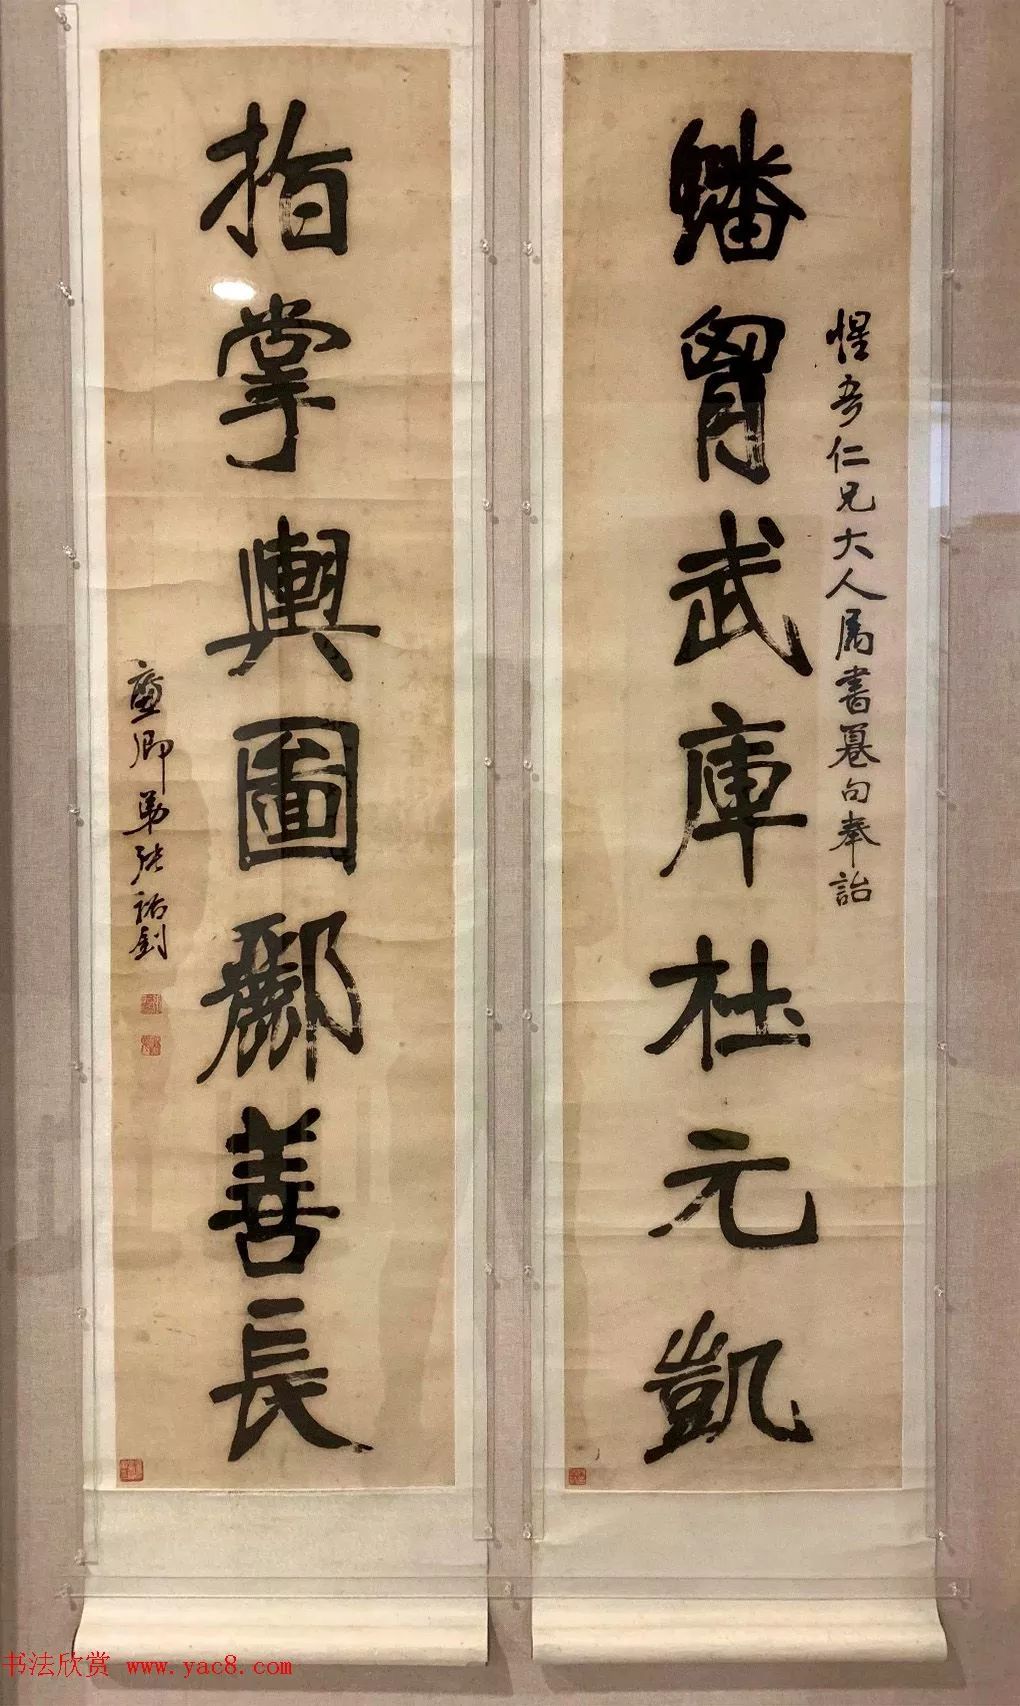 惺吾仁兄大人属書習句奉詒
蟠胷武庫杜元凱
指掌輿圖酈善長
廉卿弟張裕釗
书法欣赏 www.yac8.com